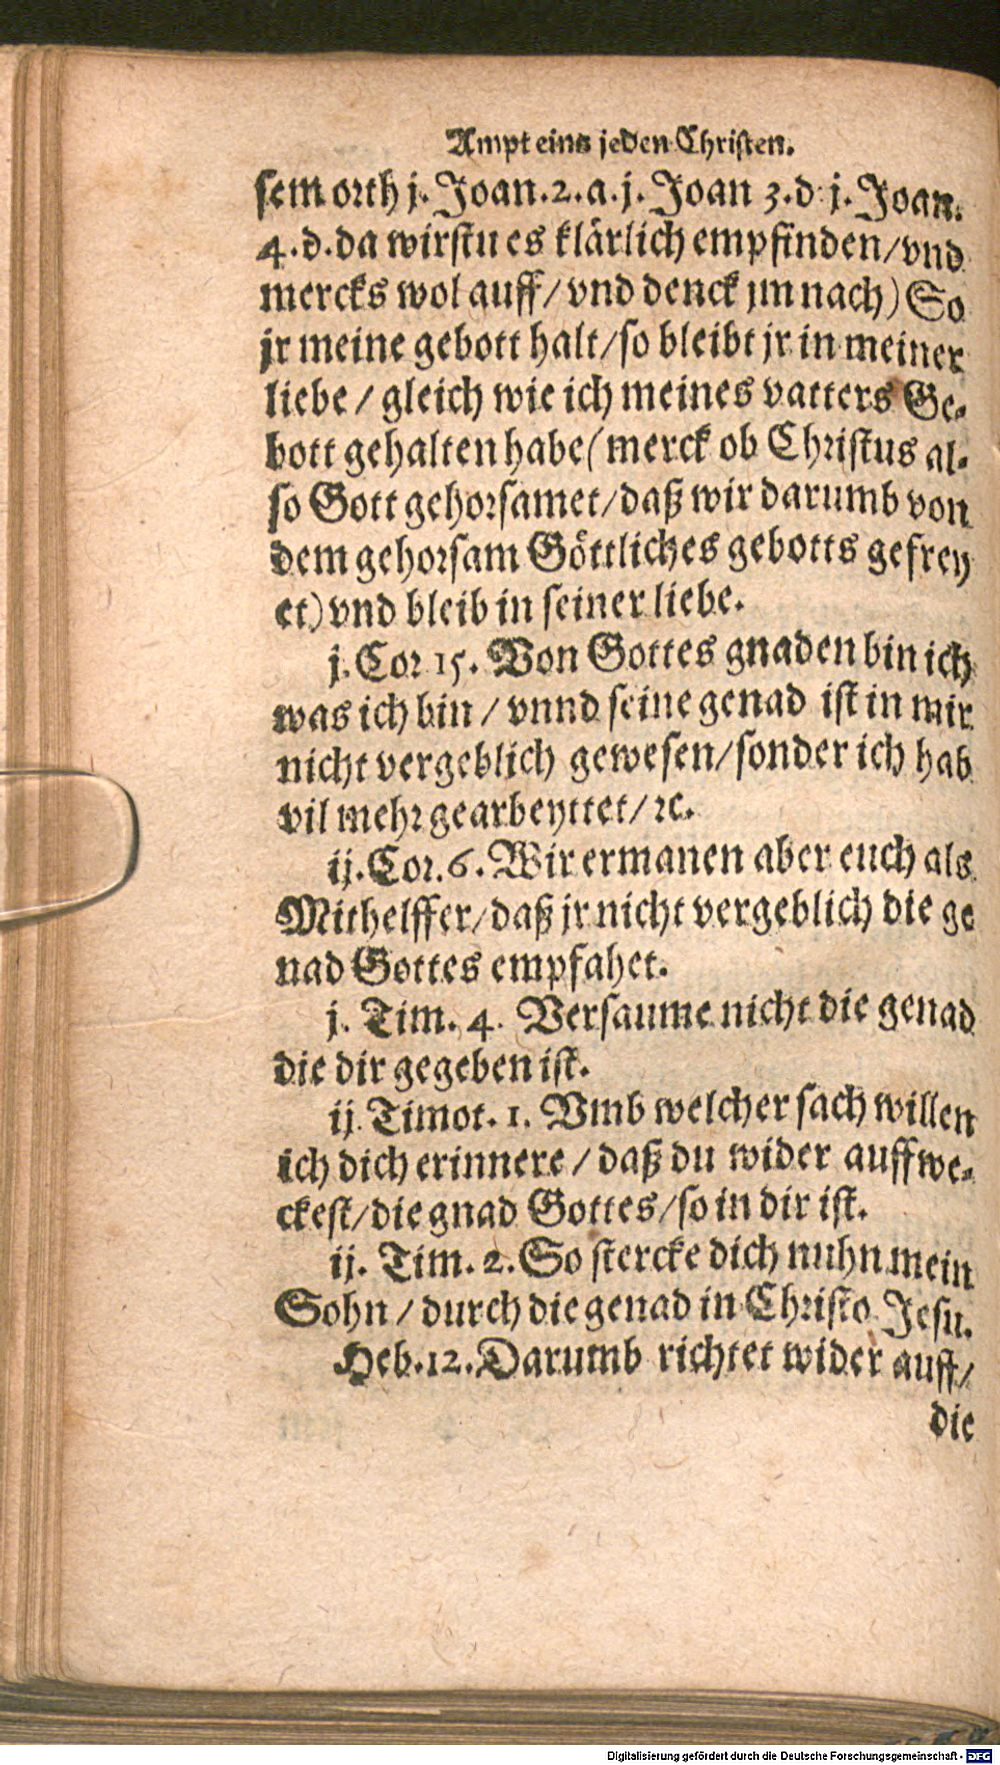 Ampt eins jeden Christen.
sem orth j. Joan.2.a.j. Joan 3.d j. Joan.
4.d.da wirstu es klärlich empfinden/vnd
mercks wol auff/vnd denck jm nach) So
jr meine gebott halt/so bleibt jr in meiner
liebe/gleich wie ich meines vatters Ge-
bott gehalten habe(merck ob Christus al-
so Gott gehorsamet/daß wir darumb von
dem gehorsam Göttliches gebotts gefrey
et)vnd bleib in seiner liebe.
j.Cor 15. Von Gottes gnaden bin ich
was ich bin/vnnd seine genad ist in mir
nicht vergeblich gewesen/sonder ich hab
vil mehr gearbeyttet/ꝛc.
ij.Cor.6.Wir ermanen aber euch als
Mithelffer/daß jr nicht vergeblich die ge
nad Gottes empfahet.
j. Tim. 4. Versaume nicht die genad
die dir gegeben ist.
ij Timot. 1. Vmb welcher sach willen
ich dich erinnere/daß du wider auffwe-
ckest/die gnad Gottes/so in dir ist.
ij. Tim. 2.So stercke dich nuhn mein
Sohn/durch die genad in Christo Jesu.
Heb.12.Darumb richtet wider auff/
die
Digitalisierung gefördert durch die Deutsche Forschungsgemeinschaft - DFG